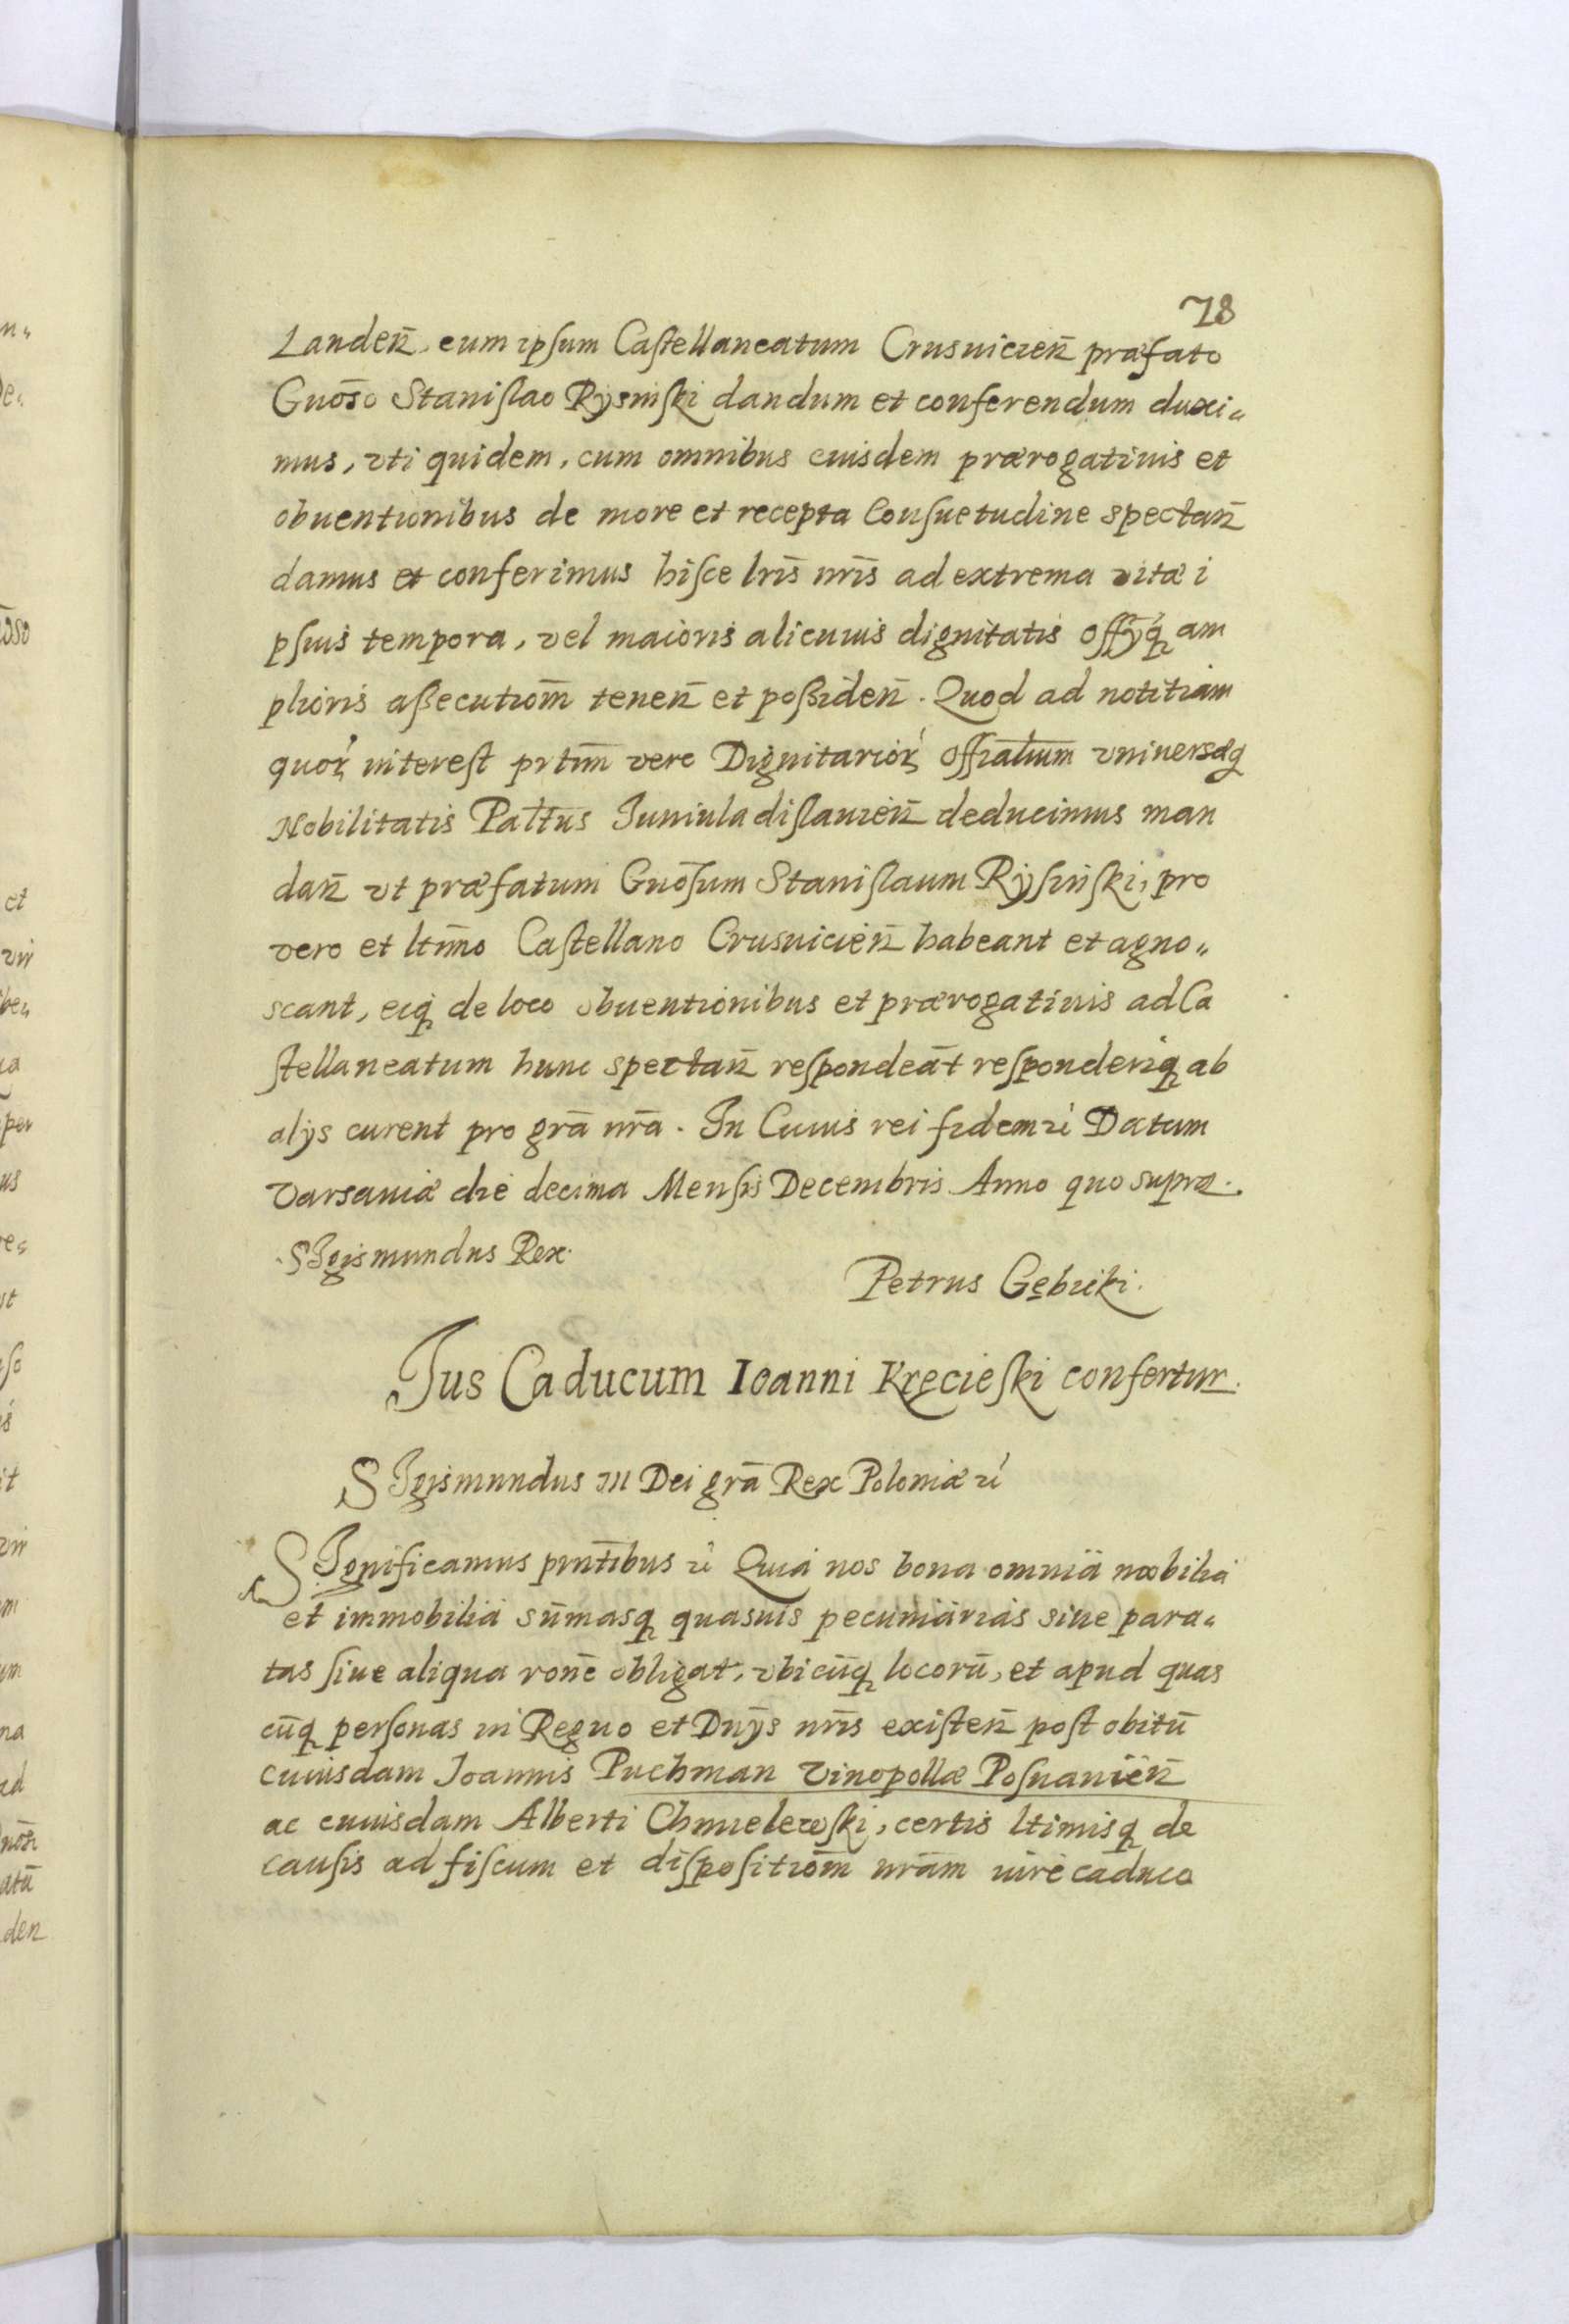 78
Landen̄ eum ipsum Castellaneatum Crusuicien̄ præfato
Gnōso Stanislao Rysinski dandum et conferendum duxi„
mus, vti quidem, cum omnibus euisdem prærogatiuis et
obuentionibus de more et recepta Consuetudine spectan̄
damus et conferimus hisce lrīs nrīs ad extrema vitæ i
psius tempora, vel maioris alicuius dignitatis offÿq́ am
plioris assecutiom̄ tenen̄ et possiden̄. Quod ad notitiam
quoꝝ interest prtim̄ vero Dignitarioꝝ offialium vniversæq
Nobilitatis Pal̄tus Iuniuladislauien̄ deducimus man
dan̄ vt præfatum Gnōsum Stanislaum Rysinski, pro
vero et ltim̄o Castellano Crusuicien̄ habeant et agno„
scant, eiq de loco obuentionibus et prærogatiuis ad Ca
stellaneatum hunc spectan̄ respondeāt responderiq ab
alÿs curent pro grā nrā. In Cuius rei fidem ꝛć Datum
Varsauiæ die decima Mensis Decembris Anno quo supra.
SIgismundus Rex.
Petrus Gębicki.
Ius Caducum Ioanni Kręcieski confertur.
SIgismundus III Dei grā Rex Poloniæ ꝛć
SIgnificamus prntībus ꝛć Quia nos bona omnia mobilia
et immobilia sūmasq quasuis pecuniarias siue para„
tas siue aliqua ronē obligat, vbicūq locorū, et apud quas
cūq personas in Regno et Dnÿs nrīs existen̄ post obitū
cuiusdam Joannis Puchman Vinopollæ Posnanien̄
ac cuiusdam Alberti Chmielewski, certis ltimisq de
causis ad fiscum et dispositiom̄ nrām iure caduco